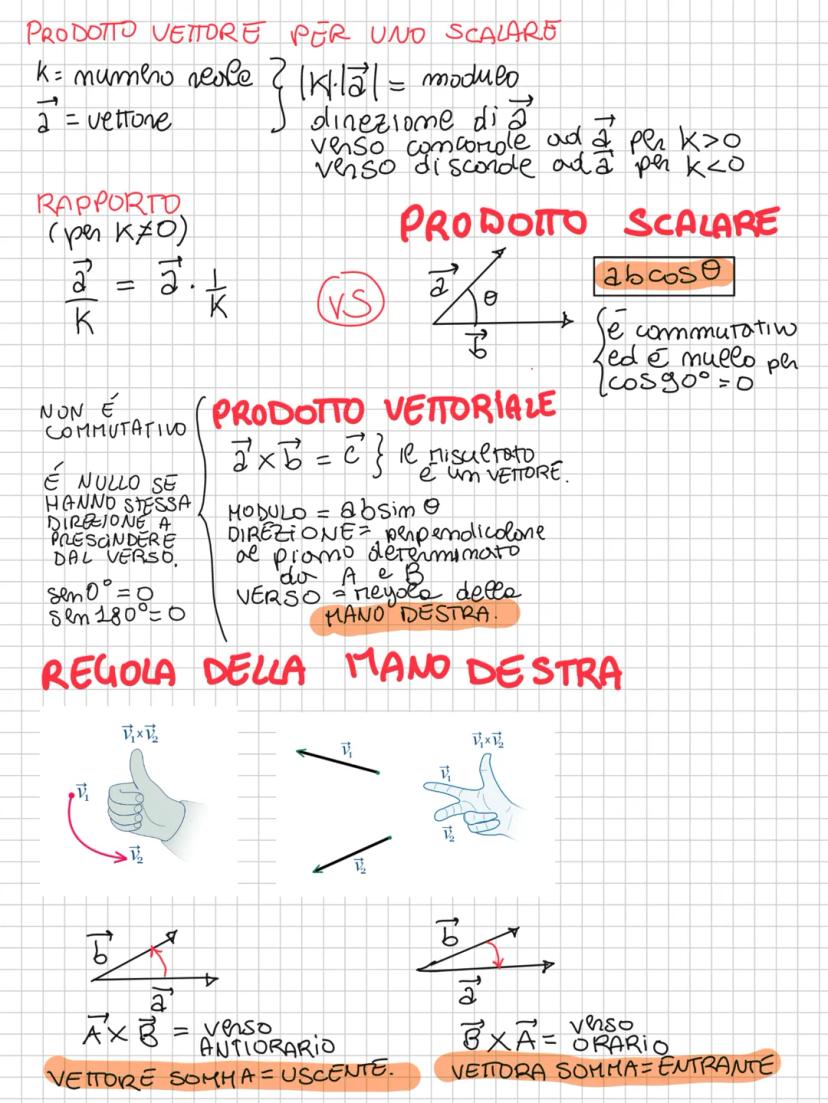 PRODOTTO VETTORE PER UNO SCALARE
k = numero reale } |K|·|a⃗| = modulo
a⃗ = vettore
direzione di a⃗
verso concorde ad a⃗ per k>0
verso discorde ad a⃗ per k<0
RAPPORTO
(per K≠0)
a⃗/K = a⃗ · 1/K
VS
PRODOTTO SCALARE
a⃗
θ
b⃗
abcosθ
{ é commutativo
ed é nullo per
cos90° = 0
NON É
COMMUTATIVO
É NULLO SE
HANNO STESSA
DIREZIONE A
PRESCINDERE
DAL VERSO.
sen0° = 0
sen180° = 0
PRODOTTO VETTORIALE
a⃗ × b⃗ = c⃗ } il risultato
é un VETTORE.
MODULO = absin θ
DIREZIONE = perpendicolare
al piano determinato
da A e B
VERSO = regola della
MANO DESTRA.
REGOLA DELLA MANO DESTRA
V⃗₁×V⃗₂
V⃗₁
V⃗₂
V⃗₁
V⃗₂
V⃗₁×V⃗₂
V⃗₁
V⃗₂
b⃗
a⃗
A⃗ × B⃗ = verso
ANTIORARIO
VETTORE SOMMA = USCENTE.
b⃗
a⃗
B⃗ × A⃗ = verso
ORARIO
VETTORA SOMMA = ENTRANTE